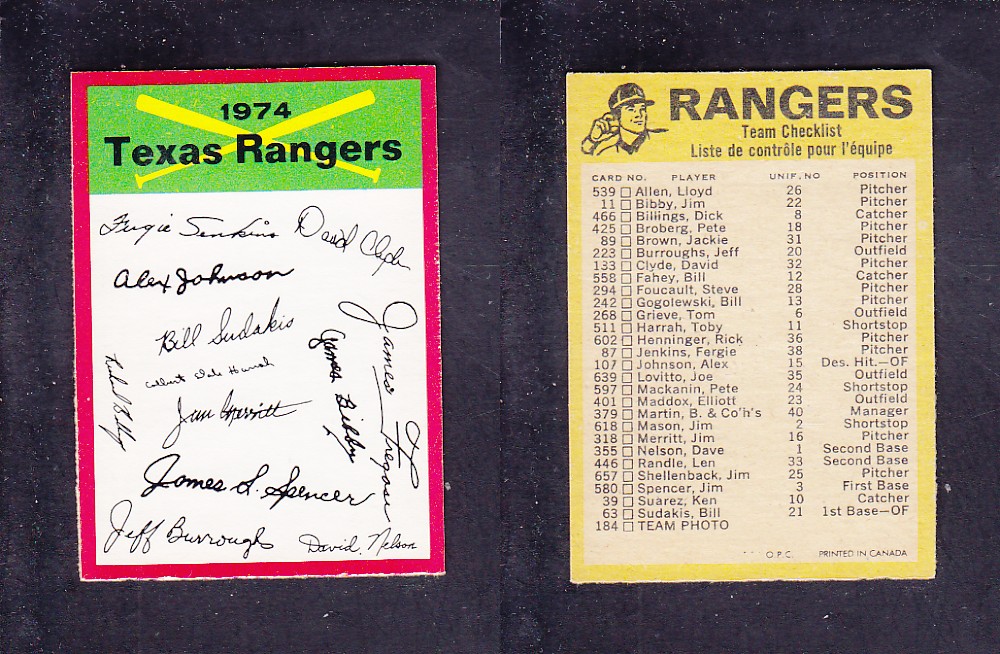 1974
Texas Rangers
Fergie Jenkins
David Clyde
Alex Johnson
Bill Sudakis
James Fregosi
James Bibby
Colbert Dale Harrah
Jim Merritt
James L. Spencer
Jeff Burroughs
David, Nelson
RANGERS
Team Checklist
Liste de contrôle pour l'équipe
CARD NO. PLAYER UNIF. NO POSITION
539 Allen, Lloyd 26 Pitcher
11 Bibby, Jim 22 Pitcher
466 Billings, Dick 8 Catcher
425 Broberg, Pete 18 Pitcher
89 Brown, Jackie 31 Pitcher
223 Burroughs, Jeff 20 Outfield
133 Clyde, David 32 Pitcher
558 Fahey, Bill 12 Catcher
294 Foucault, Steve 28 Pitcher
242 Gogolewski, Bill 13 Pitcher
268 Grieve, Tom 6 Outfield
511 Harrah, Toby 11 Shortstop
602 Henninger, Rick 36 Pitcher
87 Jenkins, Fergie 38 Pitcher
107 Johnson, Alex 15 Des. Hit.—OF
639 Lovitto, Joe 35 Outfield
597 Mackanin, Pete 24 Shortstop
401 Maddox, Elliott 23 Outfield
379 Martin, B. & Co'h's 40 Manager
618 Mason, Jim 2 Shortstop
318 Merritt, Jim 16 Pitcher
355 Nelson, Dave 1 Second Base
446 Randle, Len 33 Second Base
657 Shellenback, Jim 25 Pitcher
580 Spencer, Jim 3 First Base
39 Suarez, Ken 10 Catcher
63 Sudakis, Bill 21 1st Base—OF
184 TEAM PHOTO
O.P.C. PRINTED IN CANADA